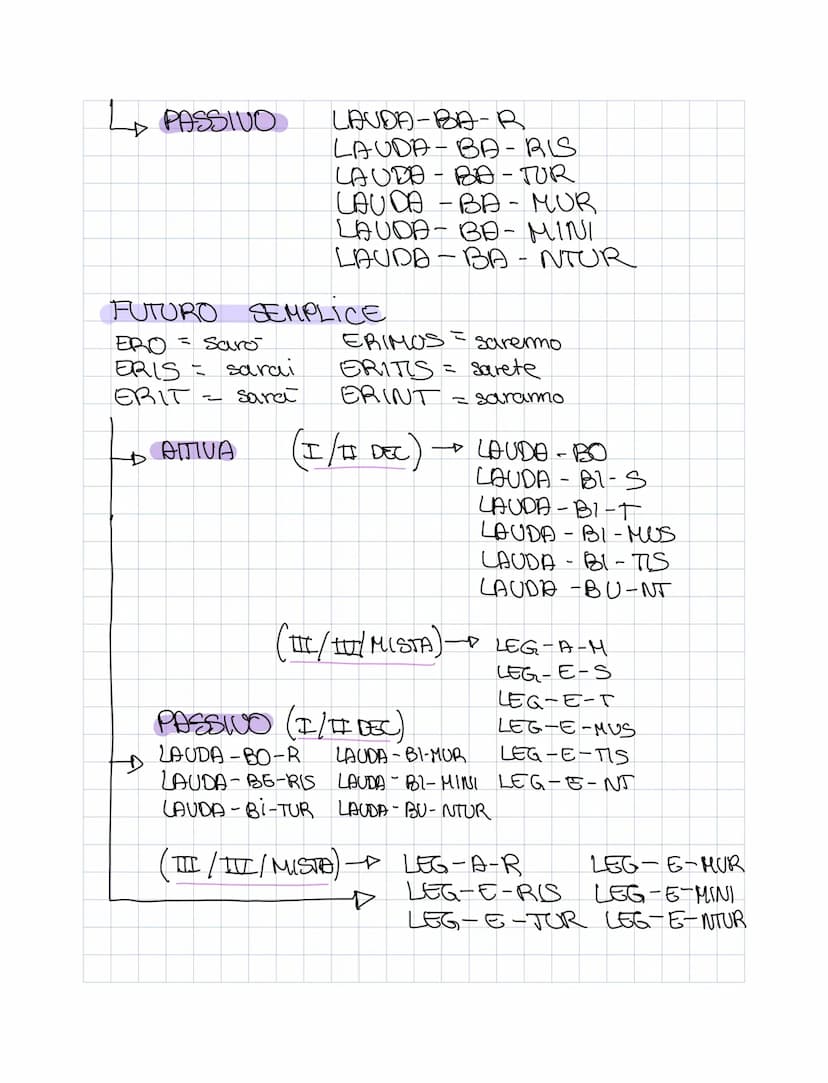 PASSIVO LAUDA-BA-R
LAUDA-BA-RIS
LAUDA-BA-TUR
LAUDA-BA-MUR
LAUDA-BA-MINI
LAUDA-BA-NTUR
FUTURO SEMPLICE
ERO = sarò ERIMOS = saremo
ERIS = sarai ERITIS = sarete
ERIT = sarà ERINT = saranno
ATTIVA (I/II DEC) → LAUDA-BO
LAUDA-BI-S
LAUDA-BI-T
LAUDA-BI-MUS
LAUDA-BI-TIS
LAUDA-BU-NT
(III/IV/MISTA) → LEG-A-M
LEG-E-S
LEG-E-T
PASSIVO (I/II DEC) LEG-E-MUS
LAUDA-BO-R LAUDA-BI-MUR LEG-E-TIS
LAUDA-BE-RIS LAUDA-BI-MINI LEG-E-NT
LAUDA-Bi-TUR LAUDA-BU-NTUR
(III/IV/MISTA) → LEG-A-R LEG-E-MUR
LEG-E-RIS LEG-E-MINI
LEG-E-TUR LEG-E-NTUR